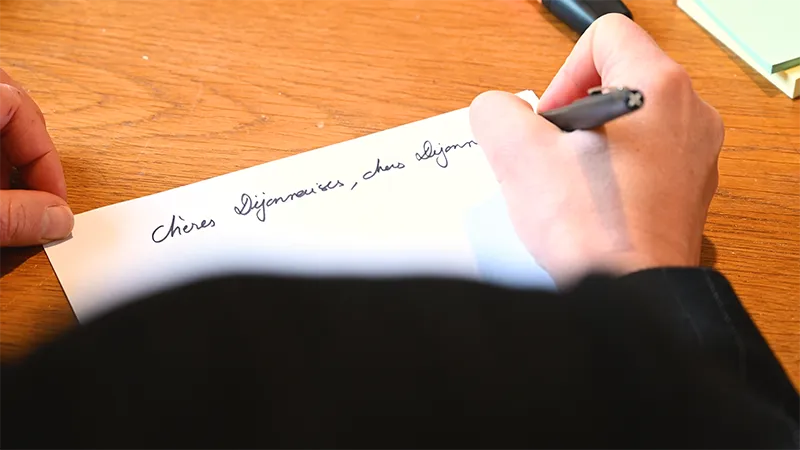 Chères Dijonnaises, chers Dijonn